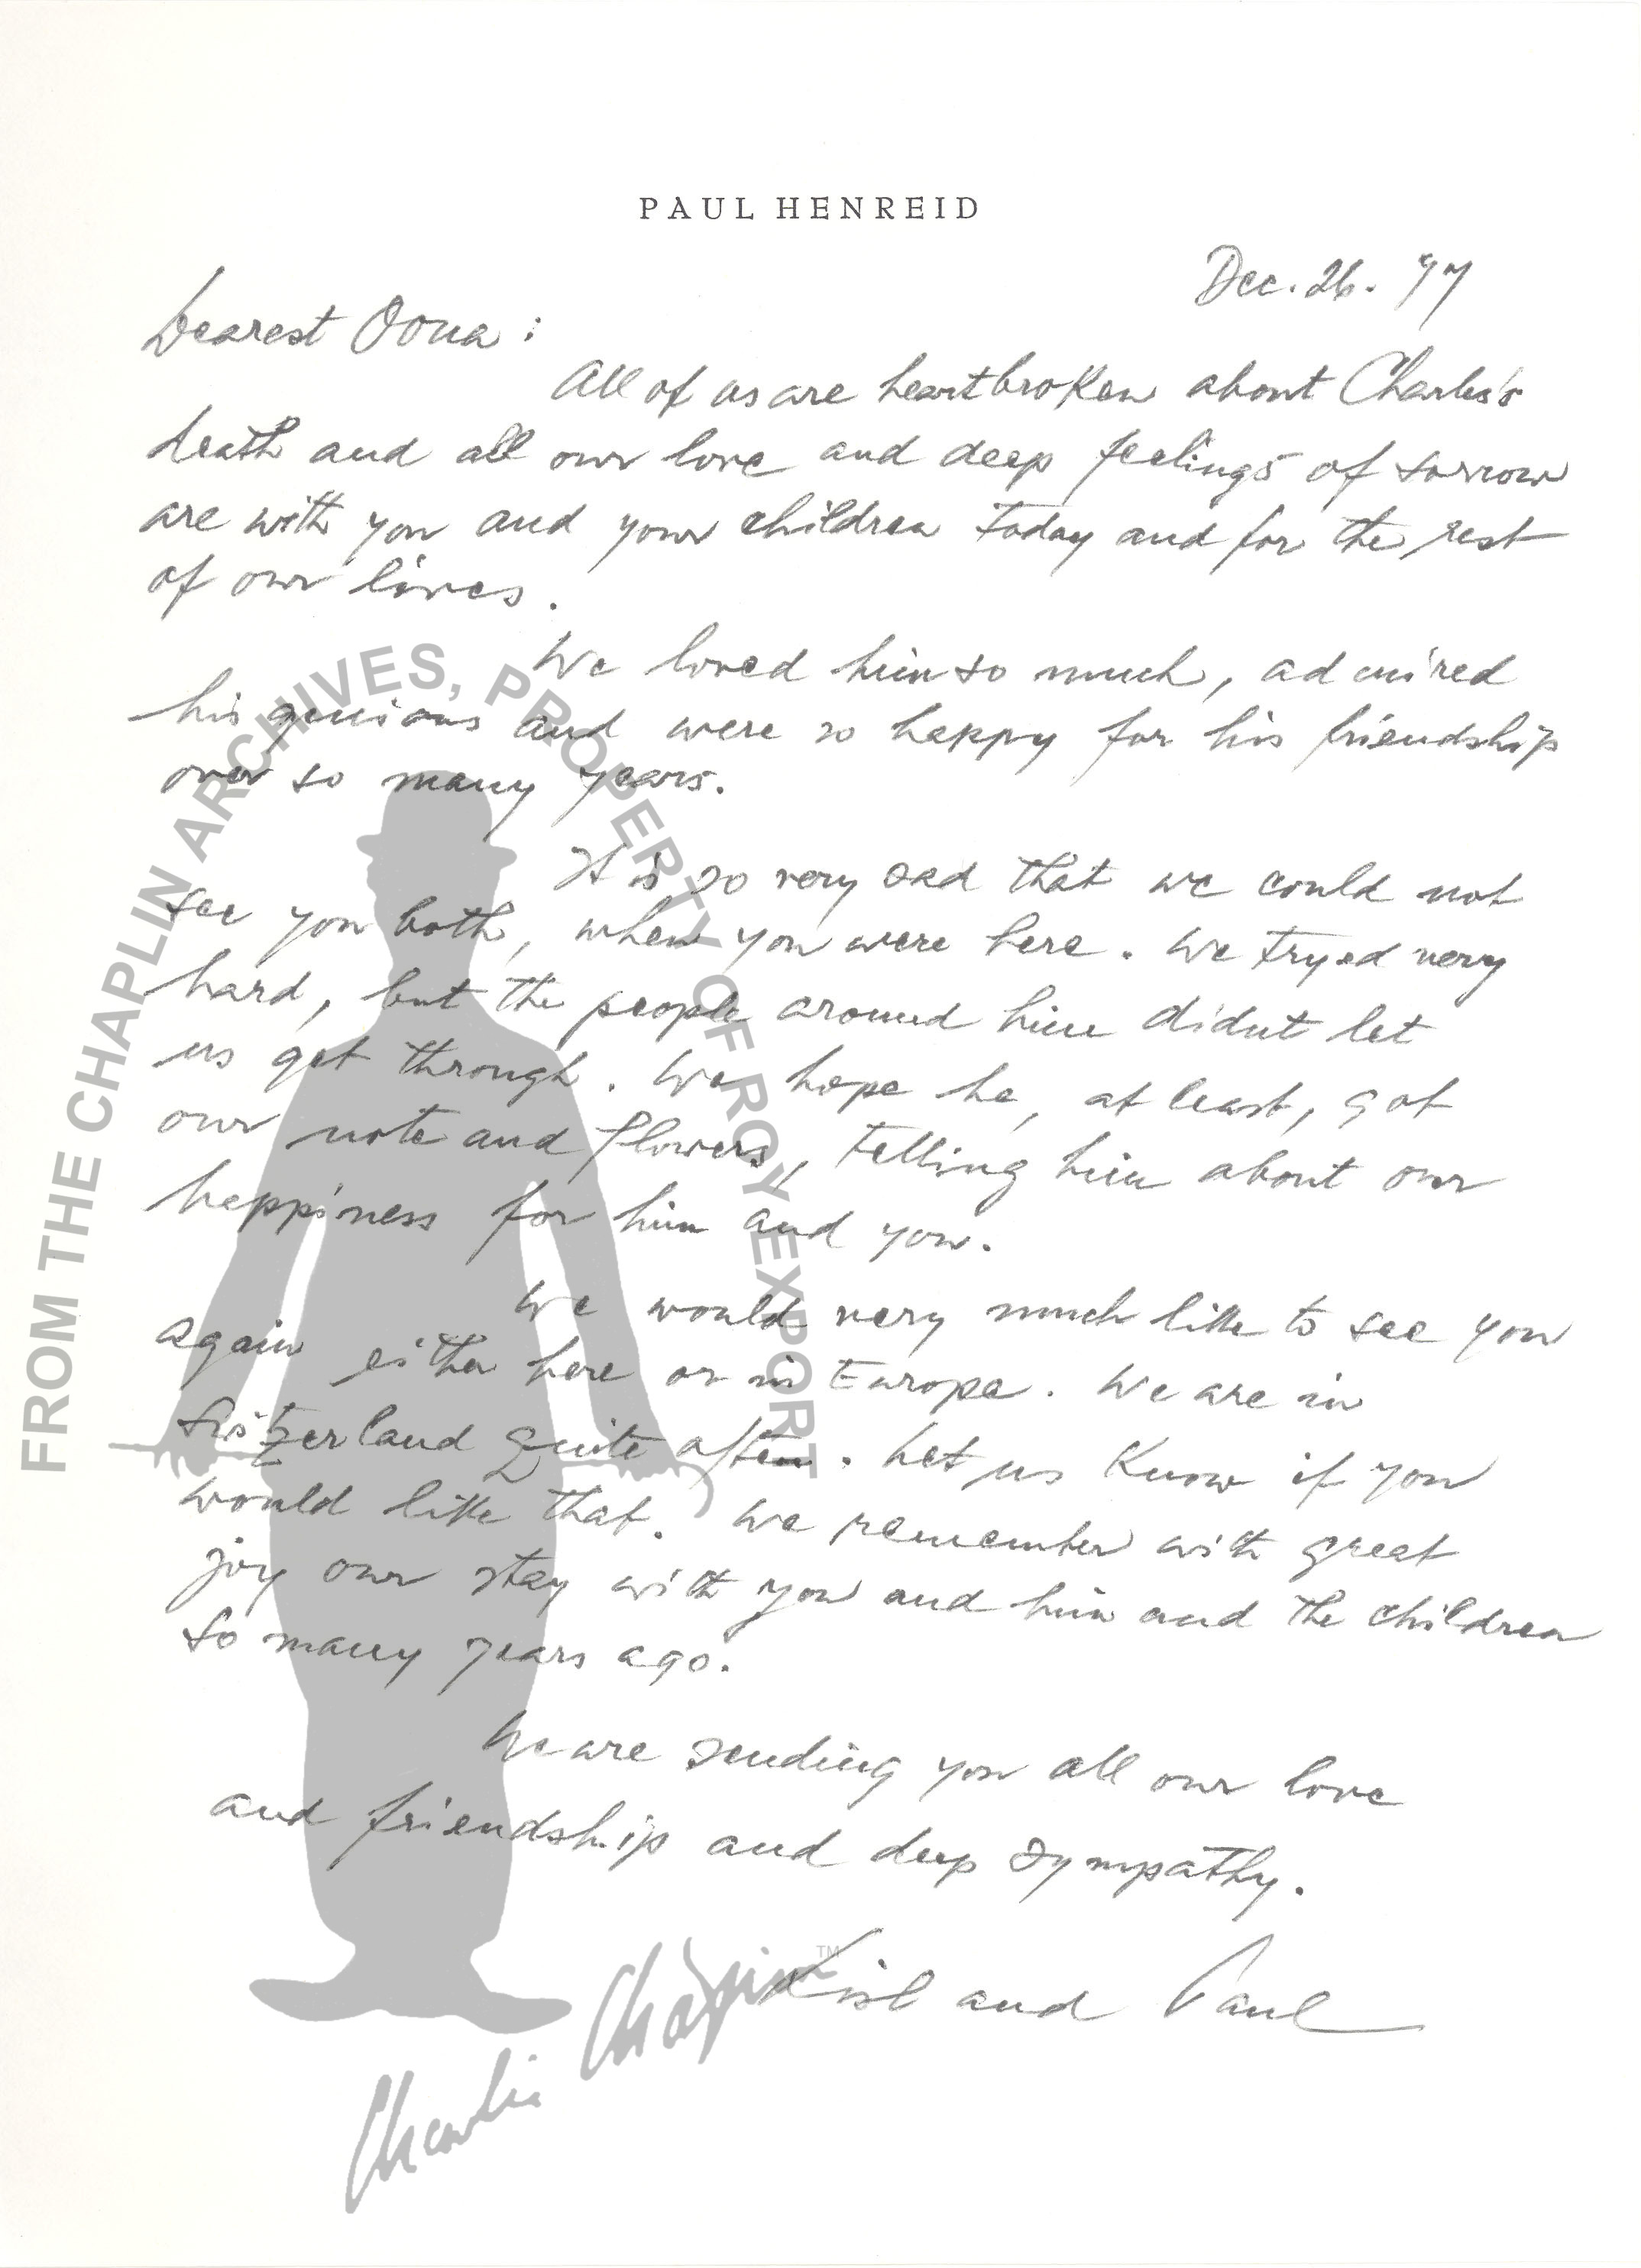 PAUL HENREID
Dec. 26. 77
Dearest Oona :
All of us are heartbroken about Charlie's
death and all our love and deep feelings of sorrow
are with you and your children today and for the rest
of our lives.
We loved him so much, admired
his genious and were so happy for his friendship
over so many years.
It is so very sad that we could not
see you both, when you were here. We tryed very
hard, but the people around him didnt let
us get through. We hope he, at least, got
our note and flowers, telling him about our
happiness for him and you.
We would very much like to see you
again either here or in Europe. We are in
Switzerland quite often. Let us know if you
would like that. We remember with great
joy our stay with you and him and the children
so many years ago.
We are sending you all our love
and friendship and deep sympathy.
Lisl and Paul
FROM THE CHAPLIN ARCHIVES, PROPERTY OF ROY EXPORT
Charlie Chaplin™